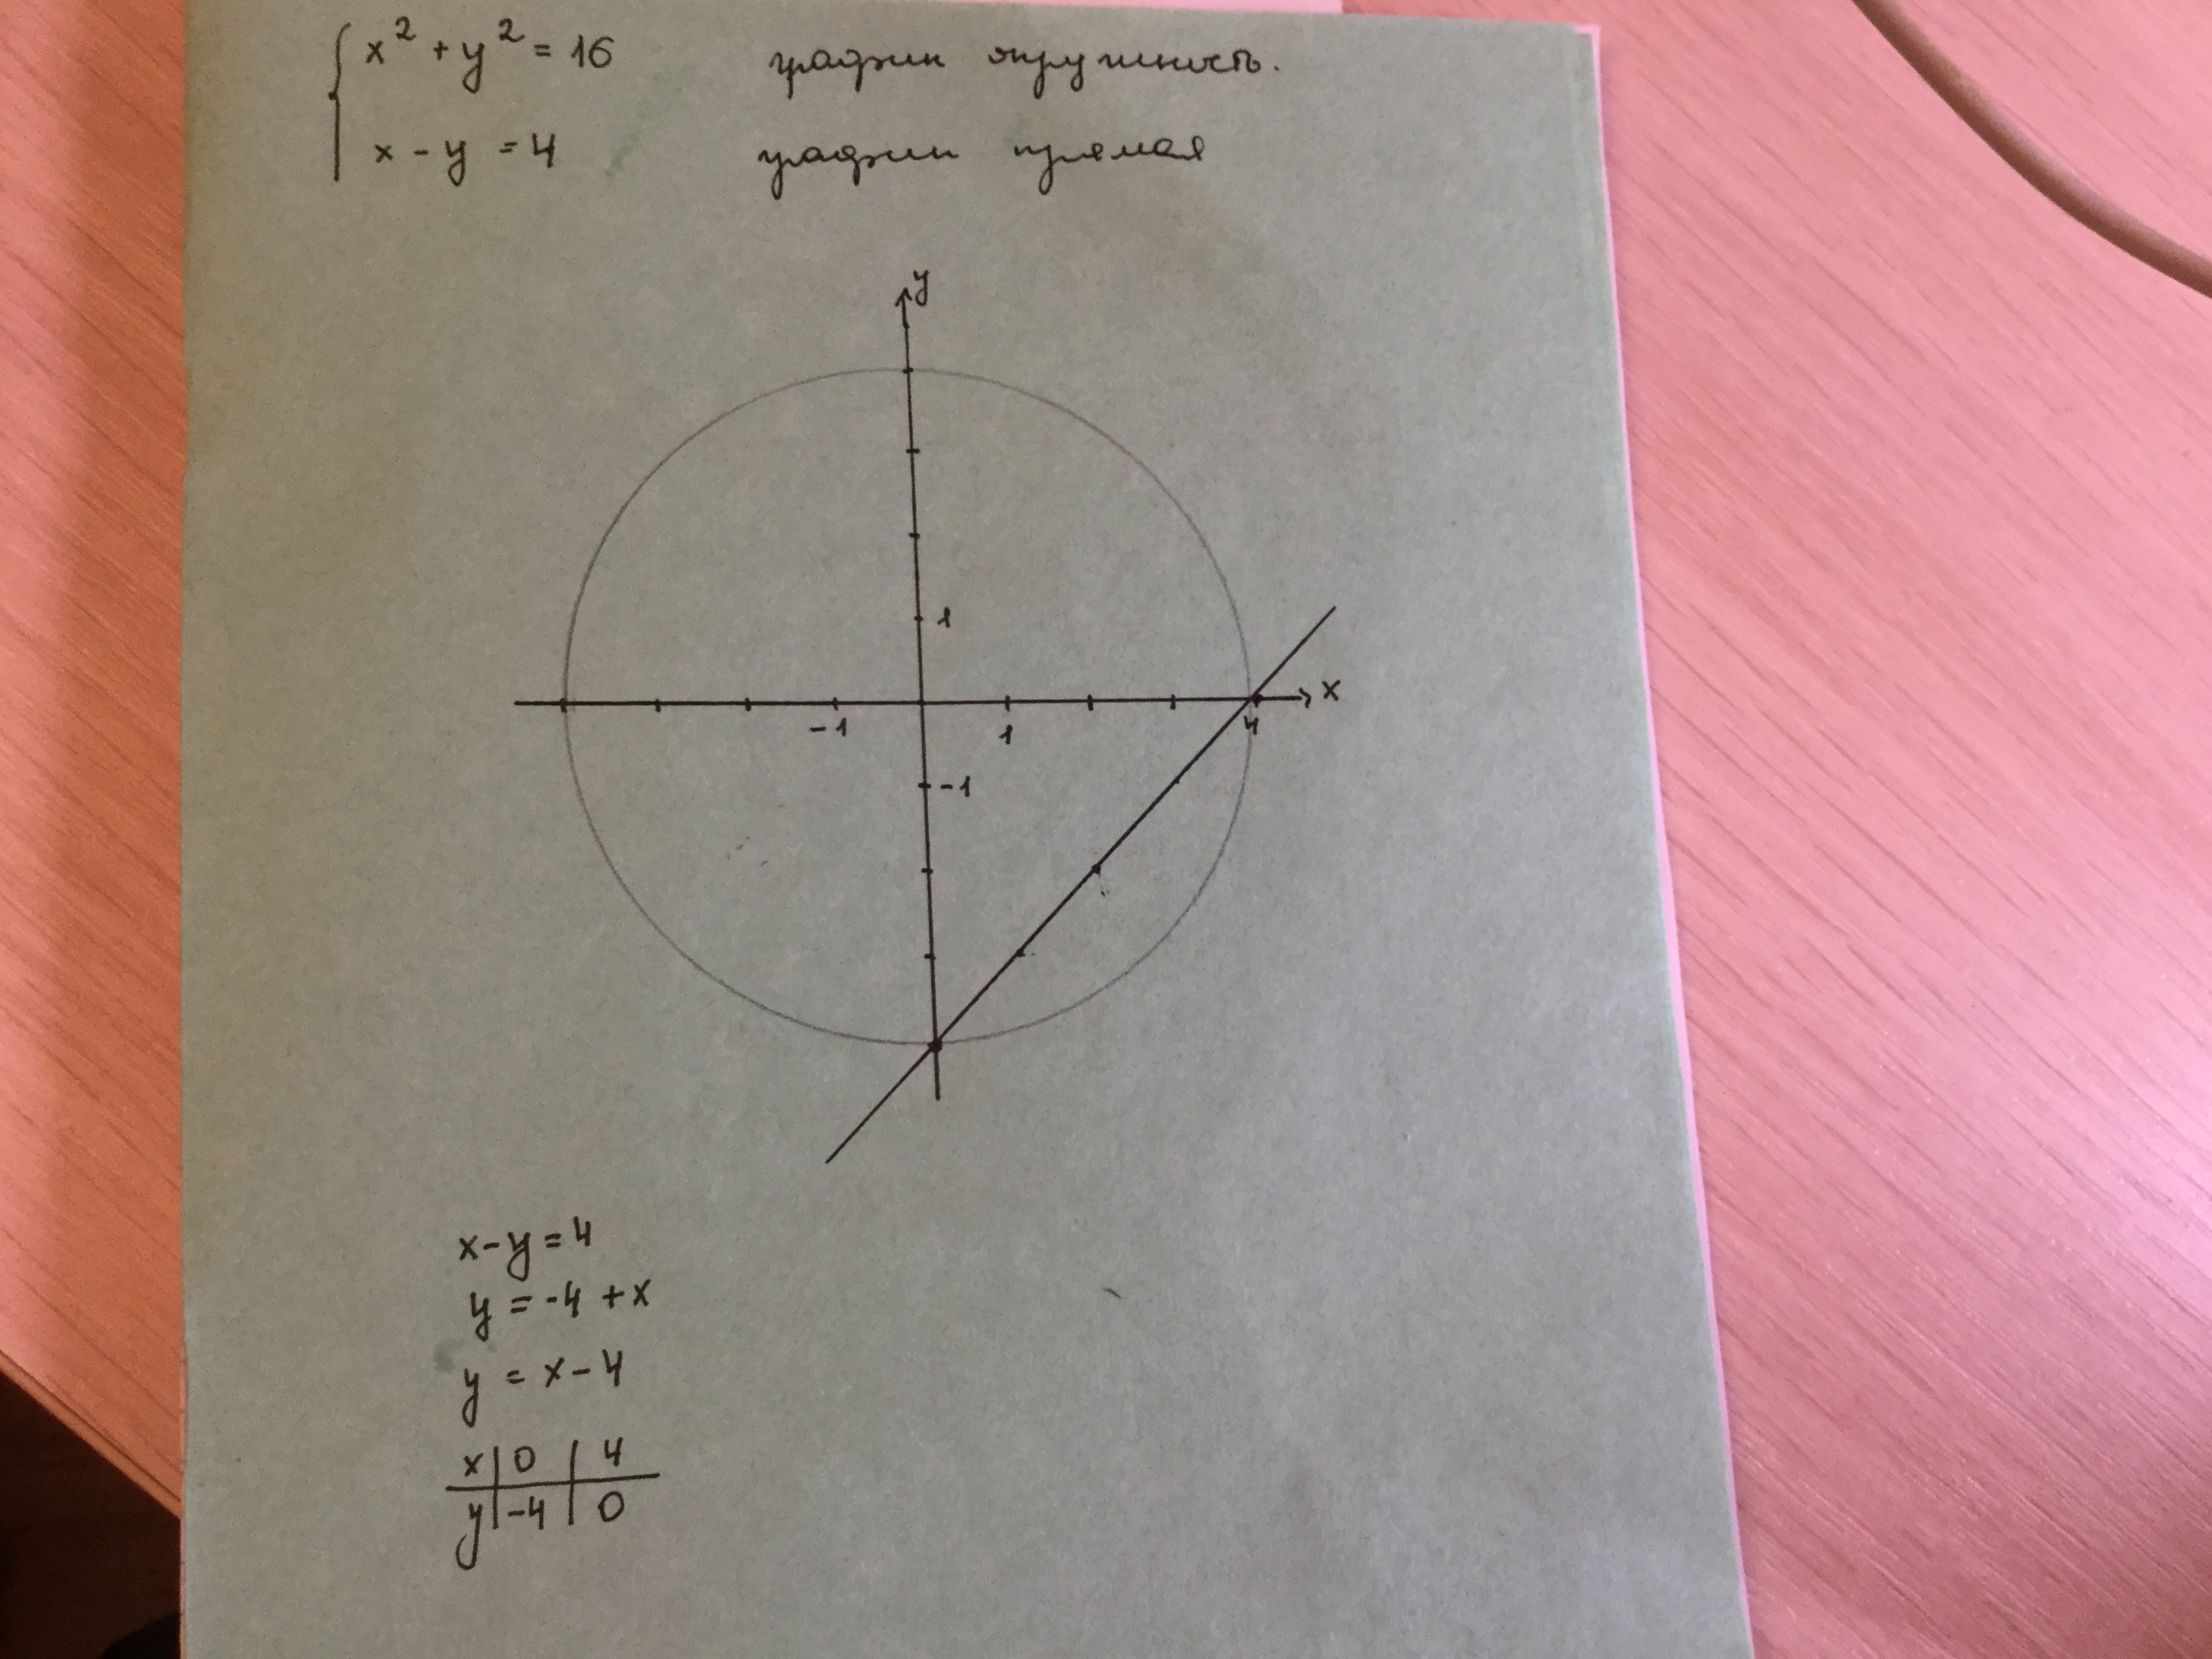 x² + y² = 16 график окружность.
x - y = 4 график прямая
y
1
x
-1 1 4
-1
x - y = 4
y = -4 + x
y = x - 4
x | 0 | 4
y | -4 | 0